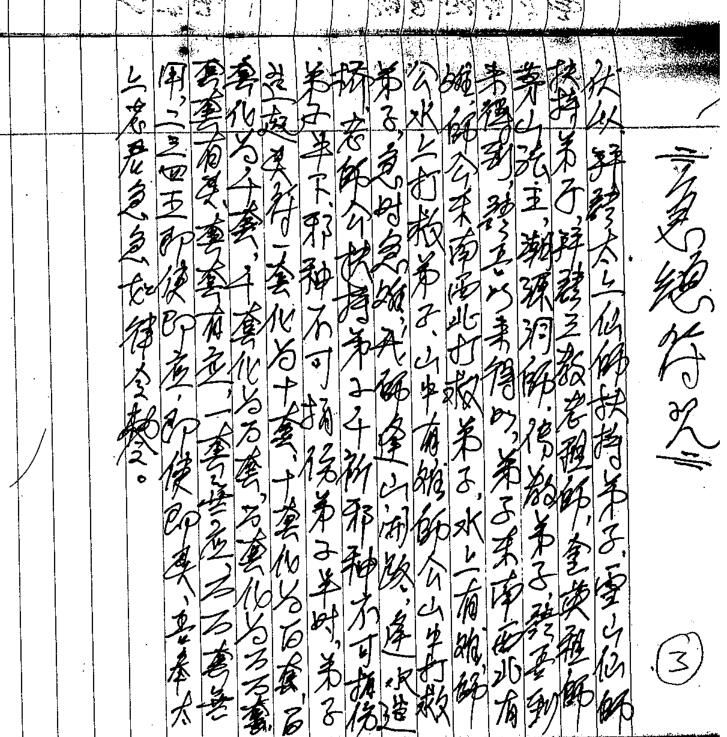 急總符咒
3
伏以拜請太上仙師扶持弟子、雪山仙師
扶持弟子、拜請三教老祖師、金英祖師
茅山法主、潮源洞師、傳教弟子、請真到
來得到、請真以來得以、弟子東南西北有
難、師公東南西北打救弟子、水上有難、師
公水上打救弟子、山中有難師公山中打救
弟子、急時急難、我師逢山開路、逢水造
橋、老師公扶持弟子千祈邪神不可損傷
弟子半下、邪神不可損傷弟子半時、弟子
造起其符一套化為十套、十套化為百套、百
套化為千套、千套化為万套、万套化為万万套、
套套有灵、套套有应、一套無应、万万套無
用、二三四五即使即应、即使即灵、吾奉太
上老君急急如律令敕令。